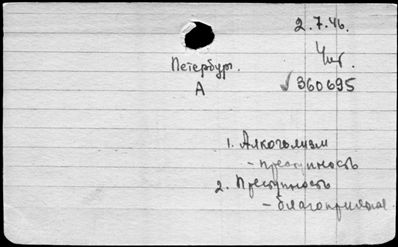 2.7.46.
Чит.
Петербург.
А
√360695
1. Алкоголизм
- преступность
2. Преступность
- благоприят